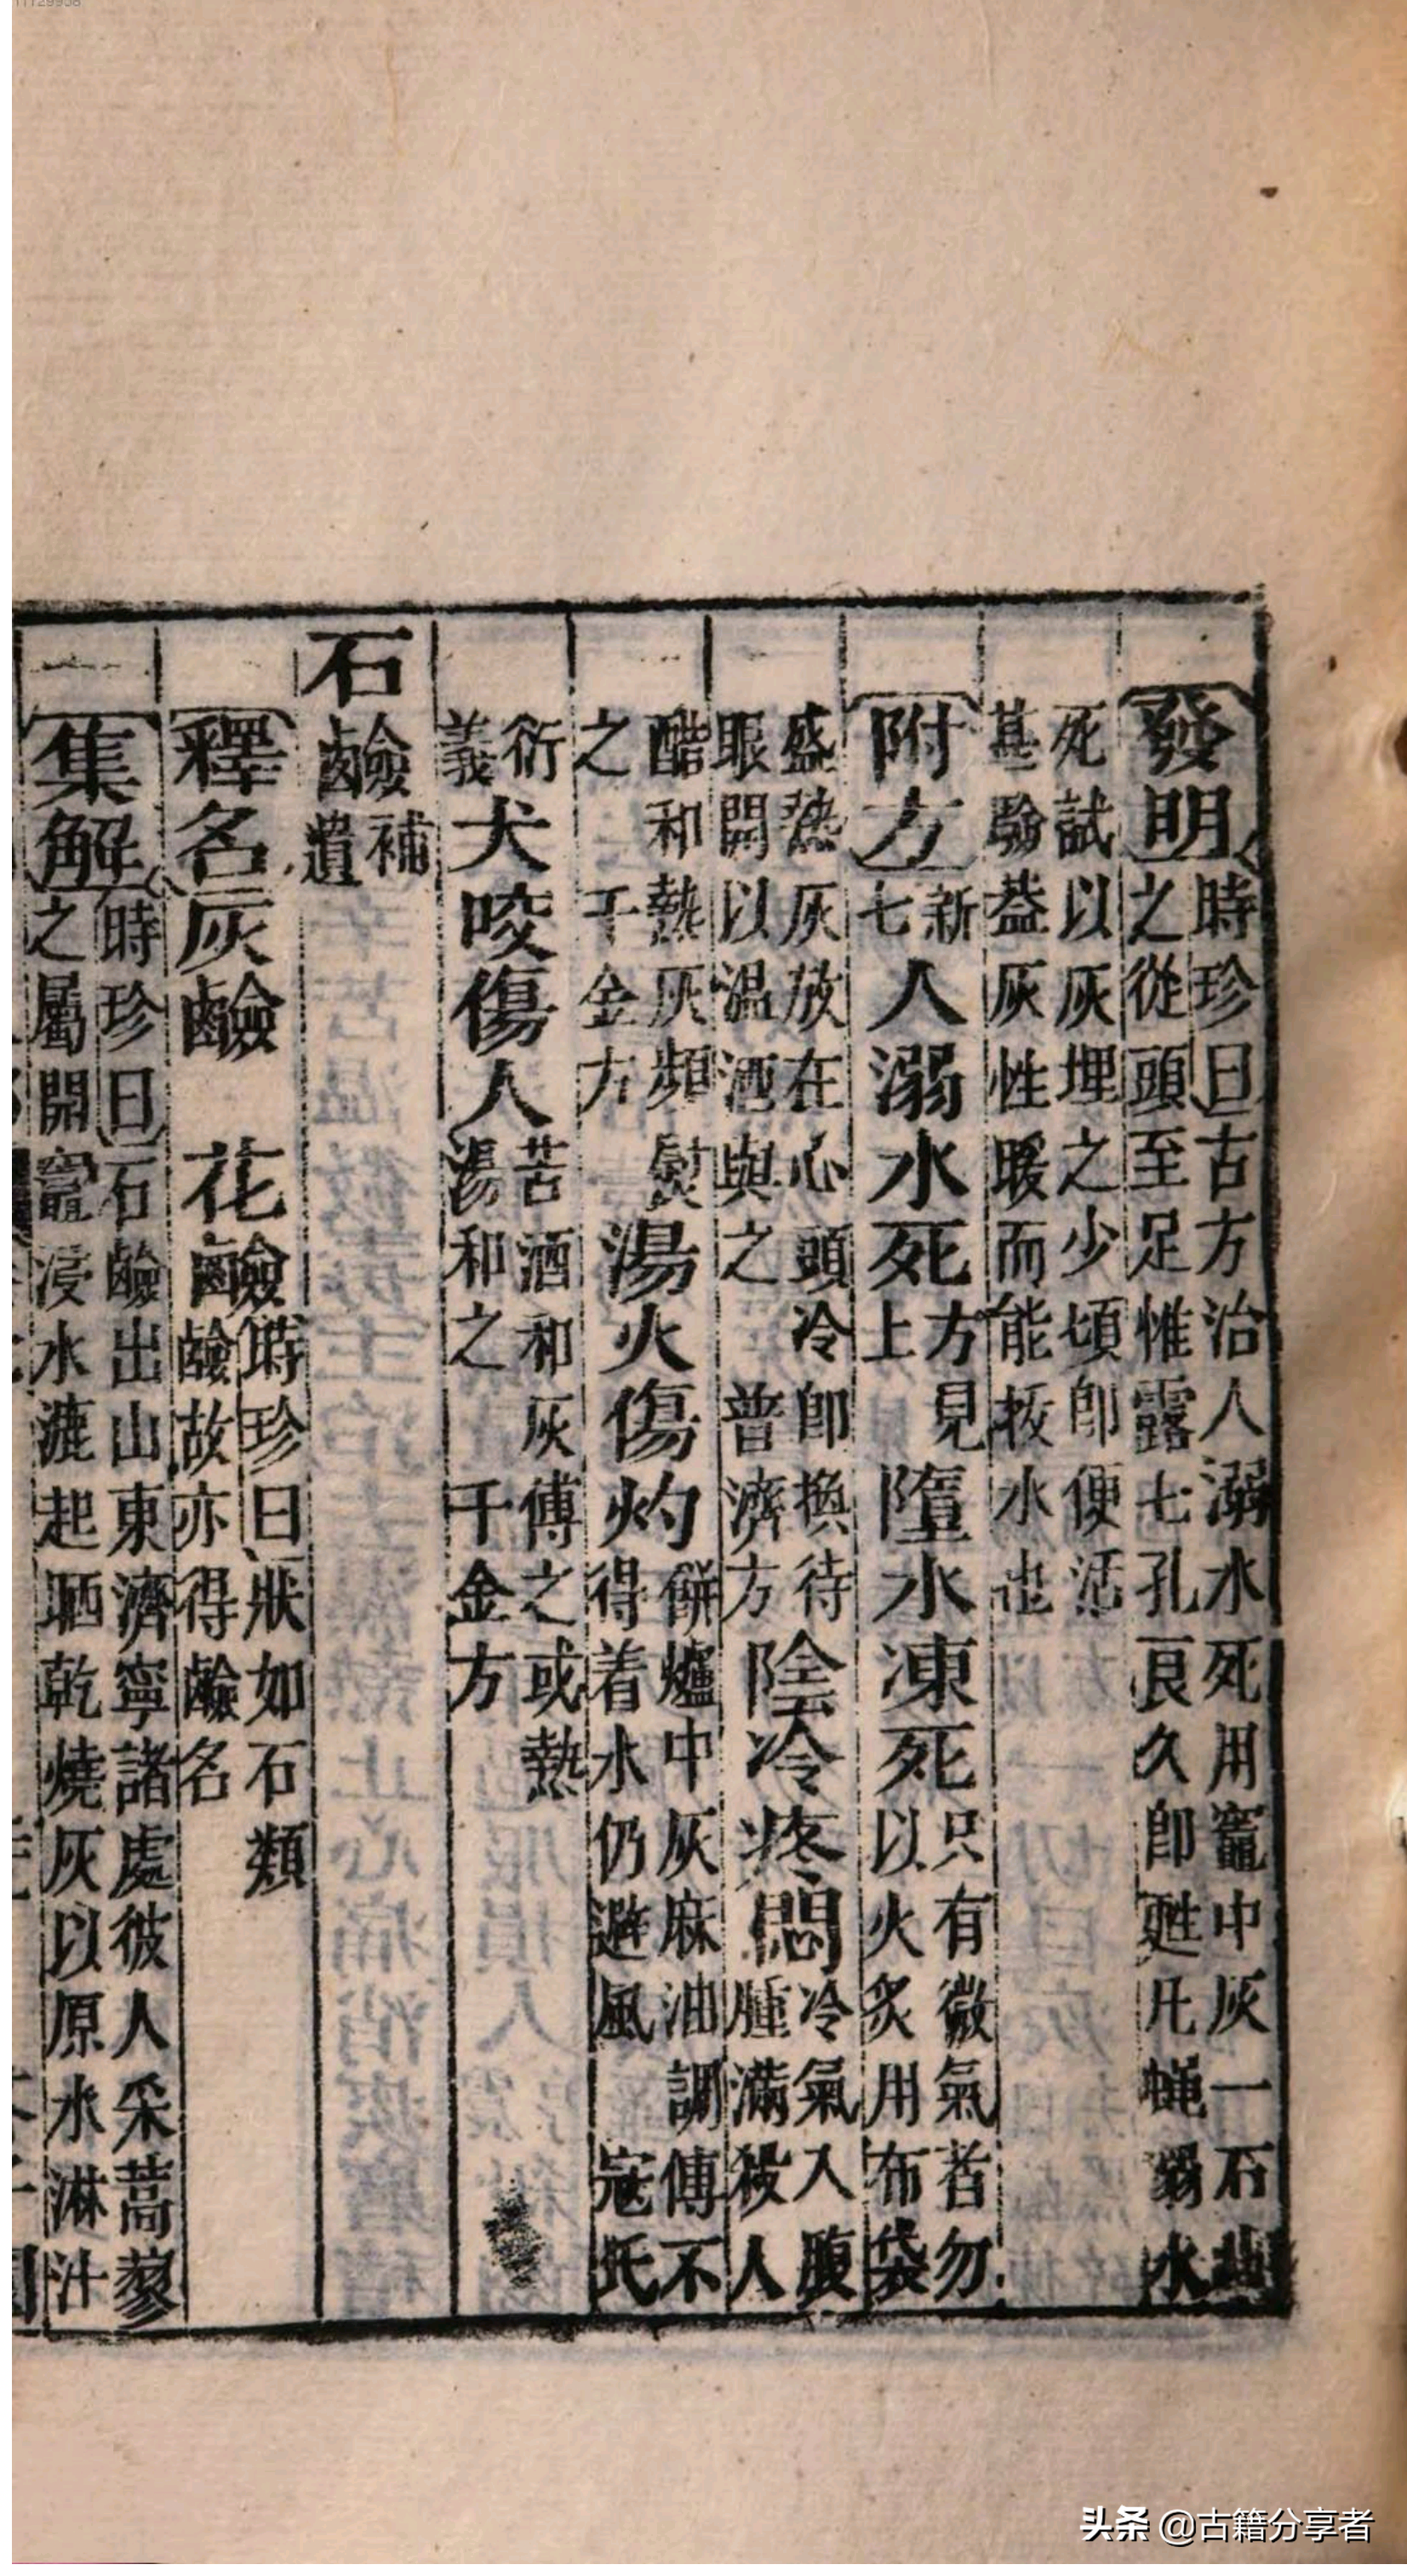 11129908
發明時珍曰古方治人溺水死用竈中灰一石埋
之從頭至足惟露七孔良久卽甦凡蝇溺水
死試以灰埋之少頃卽便活
甚驗葢灰性暖而能拔水也
附方新七人溺水死方見上墮水凍死只有微氣者勿
以火炙用布袋
盛熱灰放在心頭冷卽換待
眼開以温酒與之 普濟方陰冷疼悶冷氣入腹
腫滿殺人
醋和熱灰頻熨
之 千金方湯火傷灼餅爐中灰麻油調傅不
得着水仍避風 寇氏
衍義犬咬傷人苦酒和灰傅之或熱
湯和之 千金方
石鹼補遺
釋名灰鹼 花鹼時珍曰狀如石類
鹼故亦得鹼名
集解時珍曰石鹼出山東濟寧諸處彼人采蒿蓼
之屬開竈浸水漉起晒乾燒灰以原水淋汁
头条 @古籍分享者